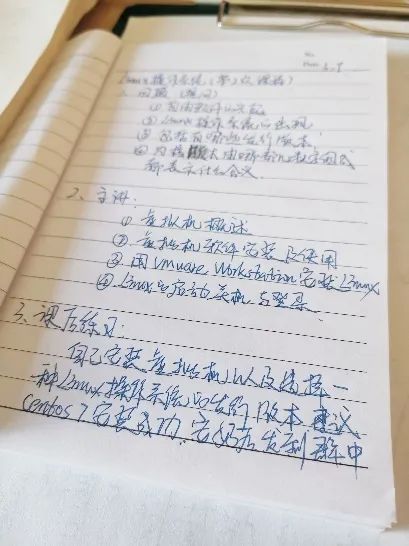 No.
Date 3.9
Linux操作系统(第2次课)
1、回顾(提问)
① 自由软件的含义
② Linux操作系统的出现
③ 包括有哪些发行版本
④ 内核 大由哪几数字组成
都表示什么含义.
2、主讲:
① 虚拟机概述
② 虚拟机软件安装及使用
③ 用VMware Workstation安装Linux
④ Linux的启动关机与登录.
3、课后练习:
自己安装虚拟机以及选择一
种Linux操作系统的发行版本 建议
centos7安装成功.安好后发到群中